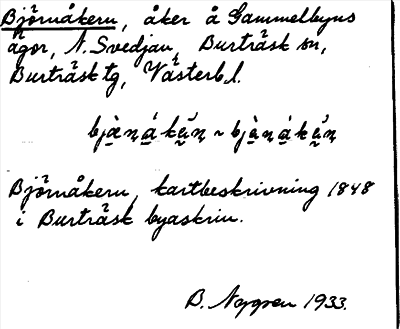 Björnåkern, åker å Gammelbyns
ägor, N. Svedjan, Burträsk sn,
Burträsk tg, Västerb. l.
bjὰṇákũ̯ṇ ~ bjὰṇákũ̯ṇ
Björnåkern, kartbeskrivning 1848
i Burträsk byaskrin.
B. Nygren 1933.